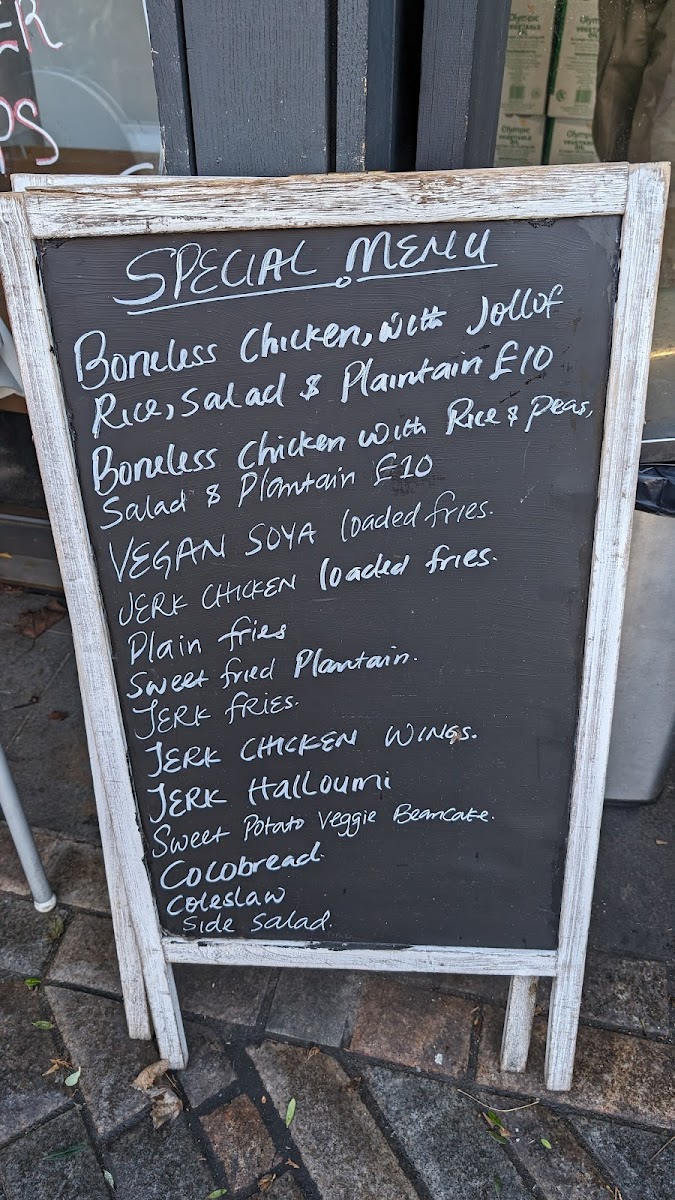 ER
PS
Olympic
VEGETABLE
OIL
Olympic
VEGETABLE
OIL
Olympic
VEGETABLE
OIL
SPECIAL MENU
Boneless Chicken, with Jollof
Rice, Salad & Plaintain £10
Boneless Chicken with Rice & Peas,
Salad & Plantain £10
VEGAN SOYA loaded fries.
JERK CHICKEN loaded fries.
Plain fries
Sweet fried Plantain.
JERK FRIES.
JERK CHICKEN WINGS.
JERK Halloumi
Sweet Potato Veggie Beancake.
Cocobread.
Coleslaw
Side Salad.